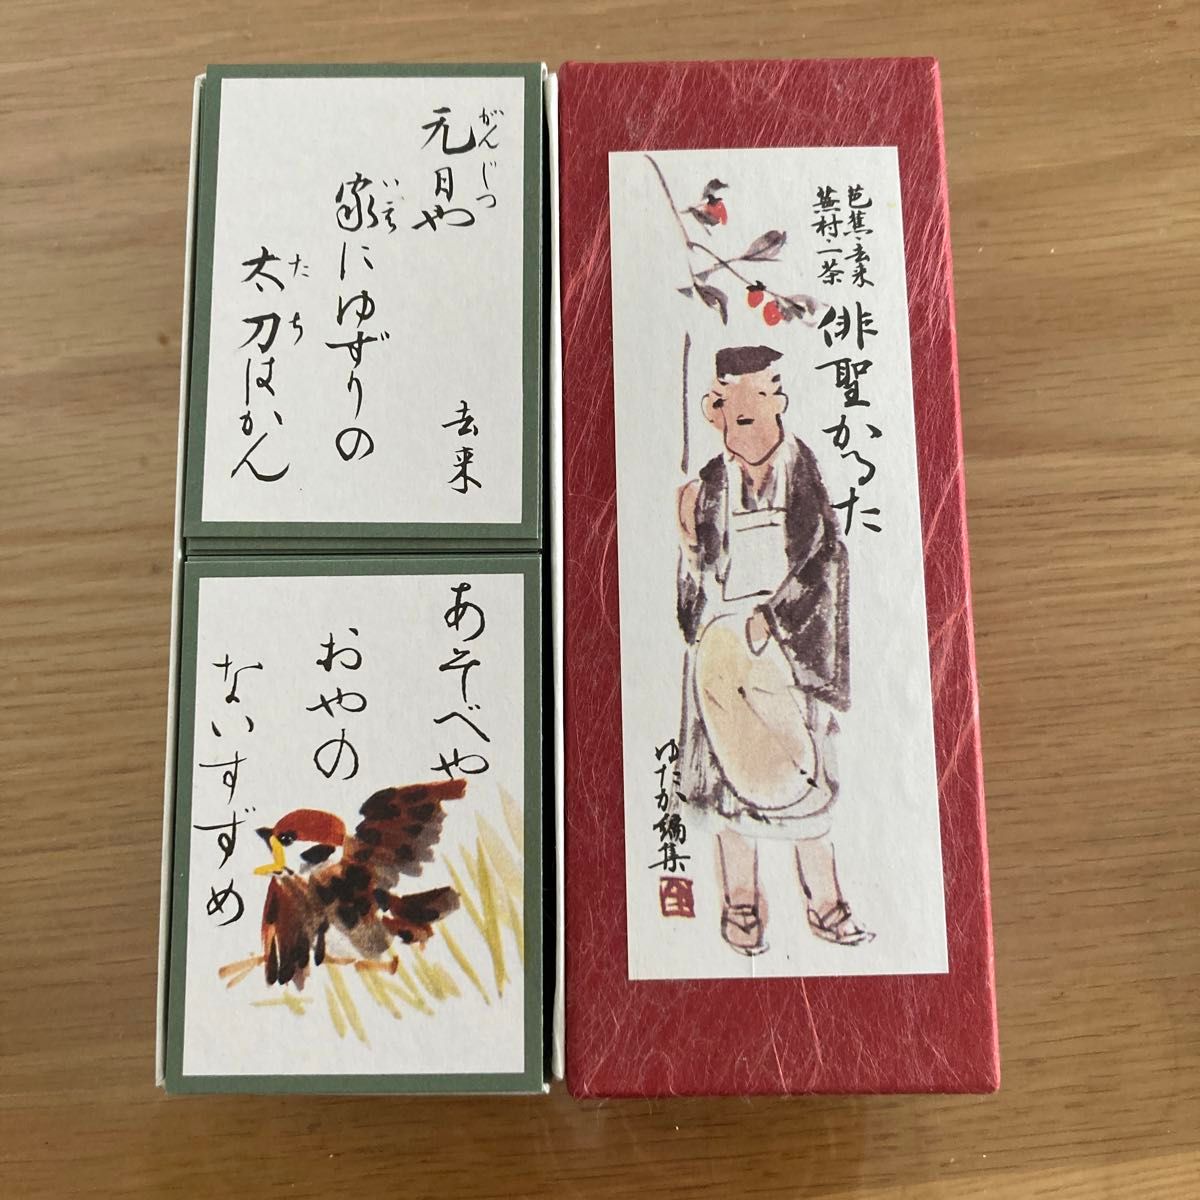 芭蕉・去来
蕪村・一茶
俳聖かるた
ゆたか編集
元日や
がんじつ
家にゆずりの
いえ
太刀はかん
たち
去来
あそべや
おやの
ないすずめ